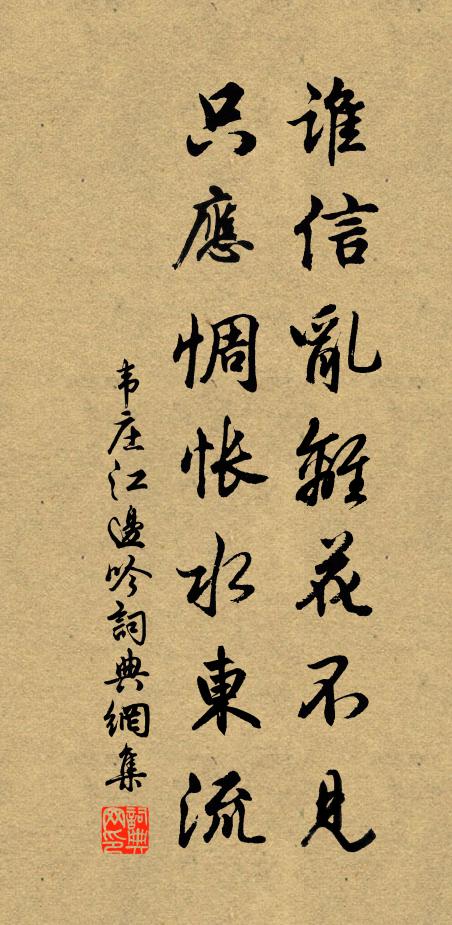 誰信亂離花不見
只應惆悵水東流
韦庄江邊吟詞典網集
詞典
网印